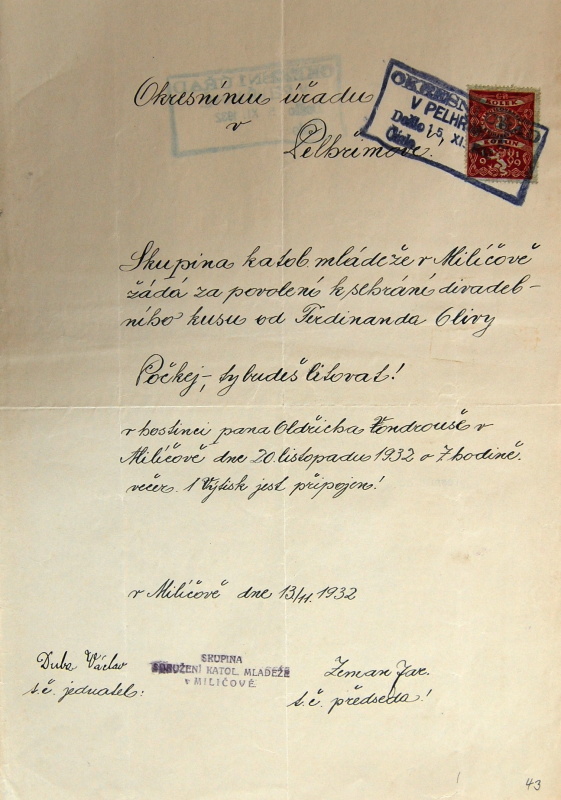 Okresnímu úřadu
v
Pelhřimově!
OKRESNÍ ÚŘAD
V PELHŘ
Došlo 15 XI.
Číslo
KOLEK
Skupina katol. mládeže v Milíčově
žádá za povolení k sehrání divadeb-
ního kusu od Ferdinanda Olivy
Počkej, ty budeš litovat!
v hostinci pana Oldřicha Vondrouše v
Milíčově dne 20 listopadu 1932 o 7 hodině.
večer. 1 Výtisk jest připojen!
v Milíčově dne 13/11. 1932
Duba Václav
t.č. jednatel:
SKUPINA
SDRUŽENÍ KATOL. MLÁDEŽE
v MILIČOVĚ
Zeman Jar.
t.č. předseda!
43